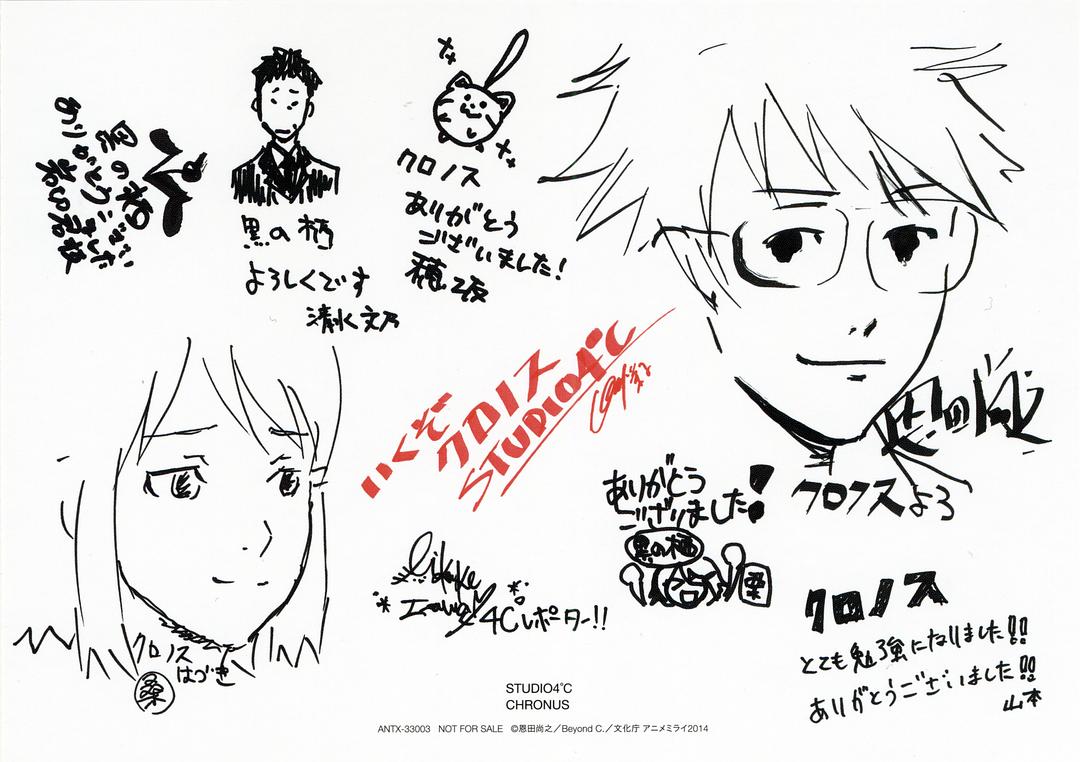 黒の栖
ありがとうございました
黒の栖
よろしくです
清水 文乃
クロノス
ありがとう
ございました!
穂坂
いくぞ
クロノス
STUDIO4℃
クロノス
はづき
桑
ありがとう
ございました!
黒の栖
桑
4Cレポーター!!
クロノスよろ
クロノス
とても勉強になりました!!
ありがとうございました!!
山本
STUDIO4℃
CHRONUS
ANTX-33003 NOT FOR SALE ©恩田尚之/Beyond C./文化庁 アニメミライ2014